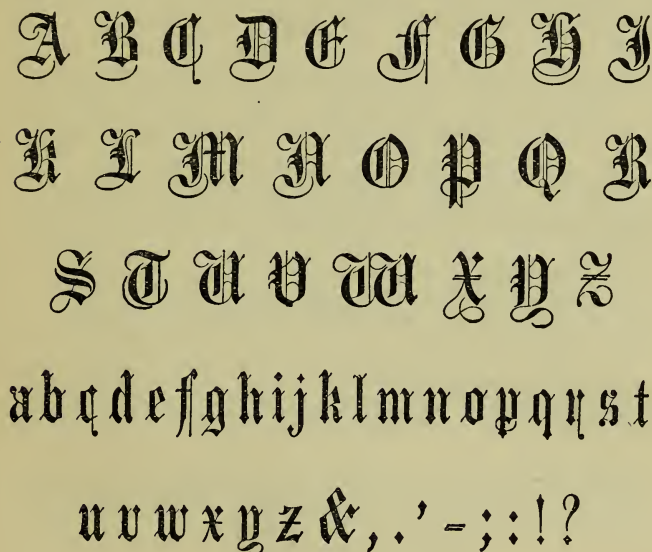 A B C D E F G H I
K L M N O P Q R
S T U V W X Y Z
abcdefghijklmnopqrst
uvwxyz&,.’-;:!?